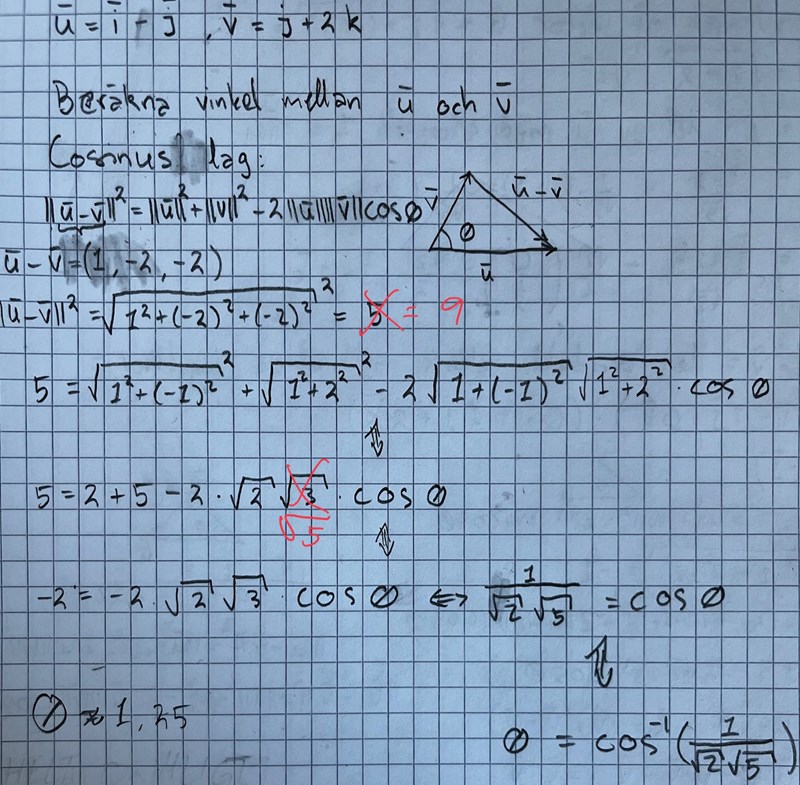 ū = ī - j̄ , v̄ = j + 2k
Beräkna vinkel mellan ū och v̄
Cosinus lag:
||ū-v̄||² = ||ū||² + ||v||² - 2||ū||||v̄||cosØ
v̄ ū-v̄
Ø
ū
ū-v̄=(1,-2,-2)
|ū-v̄||² = √(1²+(-2)²+(-2)²)² = 5 = 9
5 = √(1²+(-1)²)² + √(1²+2²)² - 2 √(1+(-1)²) √(1²+2²) · cos Ø
⇕
5 = 2 + 5 - 2 · √2 √3 · cos Ø
√5
⇕
-2 = -2 · √2 √3 · cos Ø ⇔ 1/(√2 √5) = cos Ø
⇕
Ø ≈ 1,25
Ø = cos⁻¹(1/(√2√5))